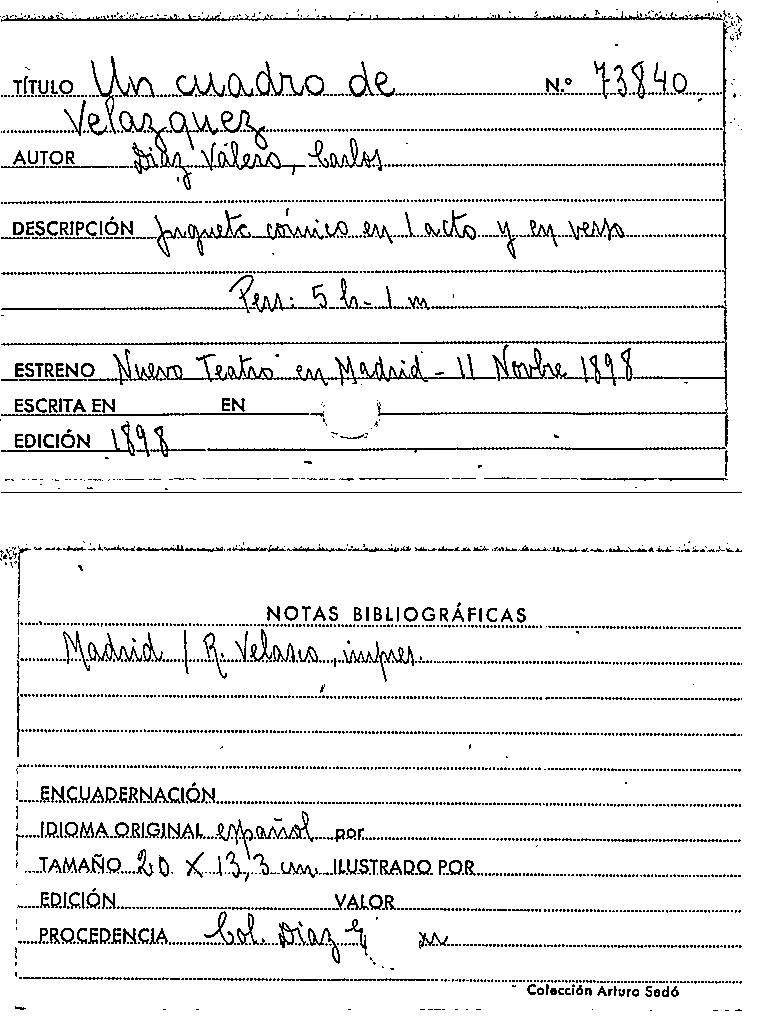 TÍTULO Un cuadro de N.º 73840
Velazquez
AUTOR Diaz Valero, Carlos
DESCRIPCIÓN juguete cómico en 1 acto y en verso
Pers: 5 h - 1 m
ESTRENO Nuevo Teatro en Madrid - 11 Novbre 1898
ESCRITA EN EN
EDICIÓN 1898
NOTAS BIBLIOGRÁFICAS
Madrid / R. Velasco, impres.
ENCUADERNACIÓN
IDIOMA ORIGINAL español por
TAMAÑO 20 X 13,3 cm ILUSTRADO POR
EDICIÓN VALOR
PROCEDENCIA Col. Diaz
Colección Arturo Sedó